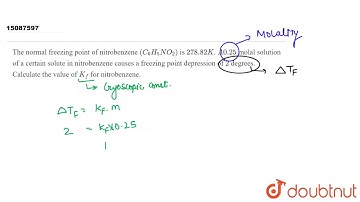 15087597
Molality
The normal freezing point of nitrobenzene (C₆H₅NO₂) is 278.82K. A 0.25 molal solution
of a certain solute in nitrobenzene causes a freezing point depression of 2 degrees.
Calculate the value of K_f for nitrobenzene.
→ ΔT_F
→ Cryoscopic const.
ΔT_F = K_F . m
2 = K_F × 0.25
doubtnut